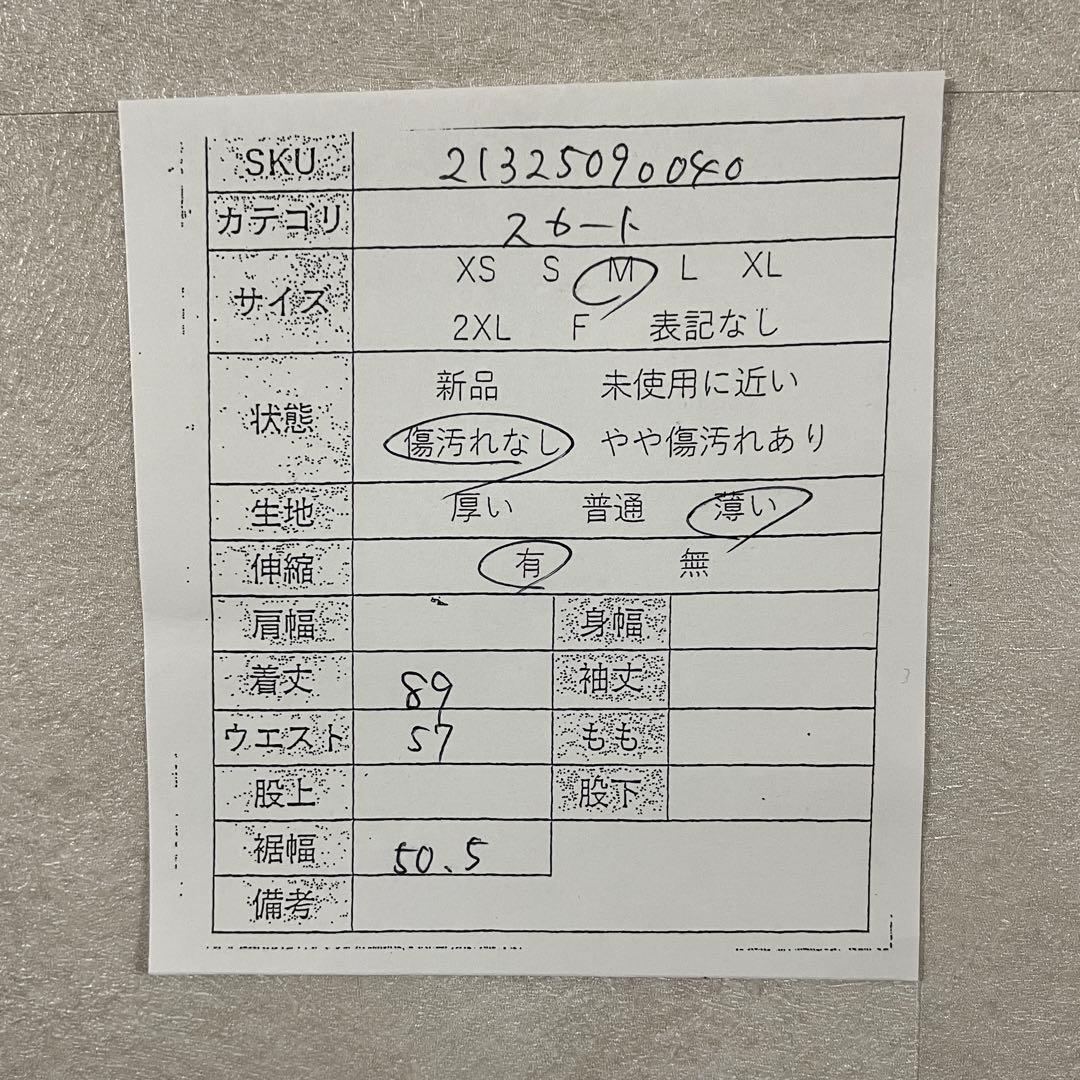 SKU 21325090040
カテゴリ スカート
サイズ XS S M L XL
2XL F 表記なし
状態 新品 未使用に近い
傷汚れなし やや傷汚れあり
生地 厚い 普通 薄い
伸縮 有 無
肩幅 身幅
着丈 89 袖丈
ウエスト 57 もも
股上 股下
裾幅 50.5
備考